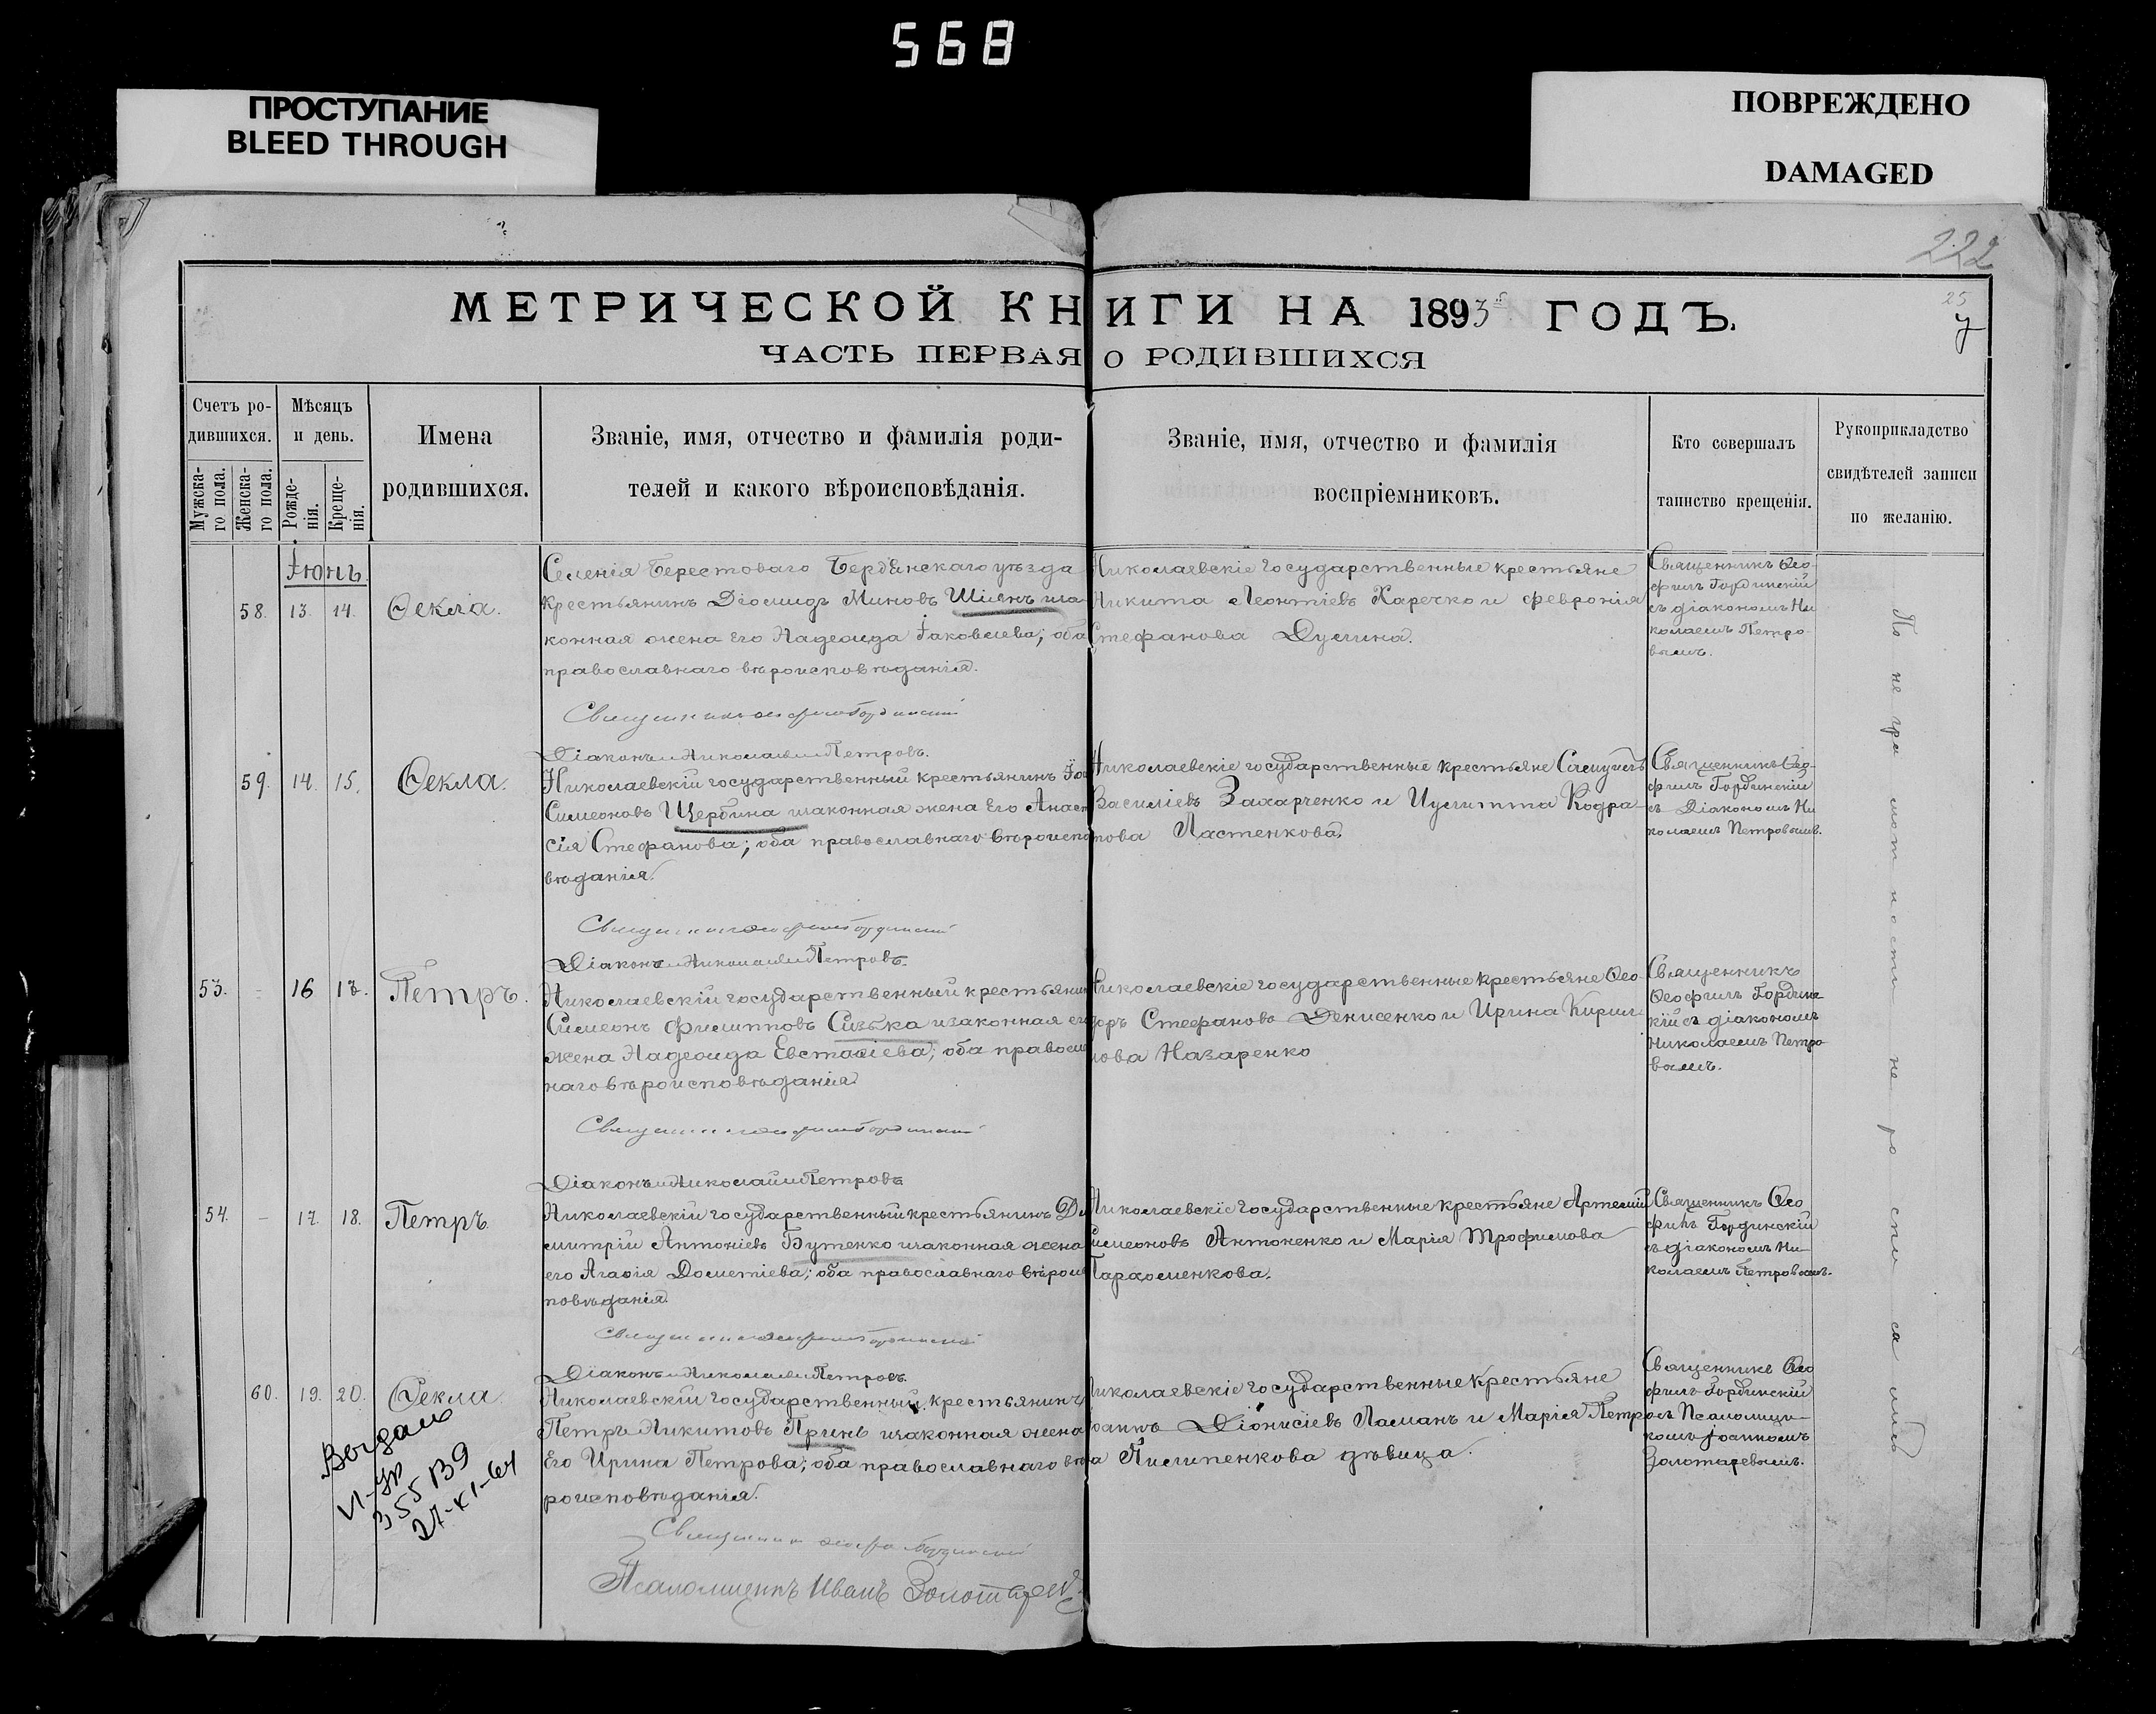 568
ПРОСТУПАНИЕ
BLEED THROUGH
ПОВРЕЖДЕНО
DAMAGED
222
25
МЕТРИЧЕСКОЙ КНИГИ НА 1893 ГОДЪ.
ЧАСТЬ ПЕРВАЯ О РОДИВШИХСЯ
Счетъ ро-
дившихся.
Мужска-
го пола.
Женска-
го пола.
Мѣсяцъ
и день.
Рожде-
нія.
Креще-
нія.
Имена
родившихся.
Званіе, имя, отчество и фамилія роди-
телей и какого вѣроисповѣданія.
Званіе, имя, отчество и фамилія
воспріемниковъ.
Кто совершалъ
таинство крещенія.
Рукоприкладство
свидѣтелей записи
по желанію.
Іюнь
58. 13. 14. Ѳекла.
Селенія Берестоваго Бердянскаго уѣзда
крестьянинъ Діомидъ Миновъ и за
конная жена его Надежда Іаковлева; оба
православнаго вѣроисповѣданія.
Николаевскіе государственные крестьяне
Никита Леонтіевъ Харечко и Февронія
Стефанова
Священникъ Ѳео
филъ Гординскій
съ діакономъ Ни
колаемъ Петро
вымъ.
Діаконъ Николай Петровъ.
59. 14. 15. Ѳекла.
Николаевскій государственный крестьянинъ
Симеоновъ Щербина и законная жена его Анаст
сія Стефанова; оба православнаго вѣроиспо
вѣданія.
Николаевскіе государственные крестьяне
Василіевъ Захарченко и Иулитта Кодра
това Ластенкова.
Священникъ Ѳео
филъ Гординскій
съ Діакономъ Ни
колаемъ Петровымъ.
Діаконъ Николай Петровъ.
53. - 16 17. Петръ.
Николаевскій государственный крестьянин
Симеонъ Филипповъ Сизька и законная его
жена Надежда Евстафіева; оба правосла
наго вѣроисповѣданія.
Николаевскіе государственные крестьяне Ѳео
доръ Стефановъ Денисенко и Ирина Кирил
лова Назаренко
Священникъ
Ѳеофилъ Гординс
кій съ діакономъ
Николаемъ Петро
вымъ.
Діаконъ Николай Петровъ
54. - 17. 18. Петръ.
Николаевскій государственный крестьянинъ Ди
митрій Антоніевъ Бутенко и законная жена
его Агафія Дометіева; оба православнаго вѣроис
повѣданія.
Николаевскіе государственные крестьяне Артемій
Симеоновъ Антоненко и Марія Трофимова
Пархоменкова.
Священникъ Ѳео
филъ Гординскій
съ діакономъ Ни
колаемъ Петровымъ.
Діаконъ Николай Петровъ.
60. 19. 20. Ѳекла
Николаевскій государственный крестьянинъ
Петръ Никитовъ Принь и законная жена
его Ирина Петрова; оба православнаго вѣ
роисповѣданія.
Николаевскіе государственные крестьяне
Іоаннъ Діонисіевъ Ламанъ и Марія Петро
ва Пилипенкова дѣвица.
Священникъ Ѳео
филъ Гординскій
съ Псаломщи
комъ Іоанномъ
Золотаревымъ.
27-XI-64
Псаломщикъ Иванъ Золотарев